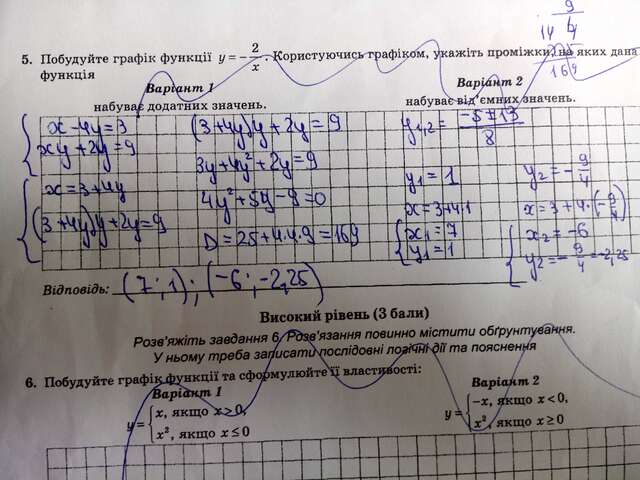 9
14 4
169
5. Побудуйте графік функції y = -2/x. Користуючись графіком, укажіть проміжки, на яких дана
функція
Варіант 1
набуває додатних значень.
Варіант 2
набуває від'ємних значень.
x - 4y = 3
xy + 2y = 9
x = 3 + 4y
(3 + 4y)y + 2y = 9
(3 + 4y)y + 2y = 9
3y + 4y² + 2y = 9
4y² + 5y - 9 = 0
D = 25 + 4·4·9 = 169
y1,2 = (-5 ± 13)/8
y1 = 1
x = 3 + 4·1
x1 = 7
y1 = 1
y2 = -9/4
x = 3 + 4·(-9/4)
x2 = -6
y2 = -9/4 = -2,25
Відповідь: (7; 1); (-6; -2,25)
Високий рівень (3 бали)
Розв'яжіть завдання 6. Розв'язання повинно містити обґрунтування.
У ньому треба записати послідовні логічні дії та пояснення
6. Побудуйте графік функції та сформулюйте її властивості:
Варіант 1
y = { x, якщо x ≥ 0,
x², якщо x ≤ 0
Варіант 2
y = { -x, якщо x < 0,
x², якщо x ≥ 0